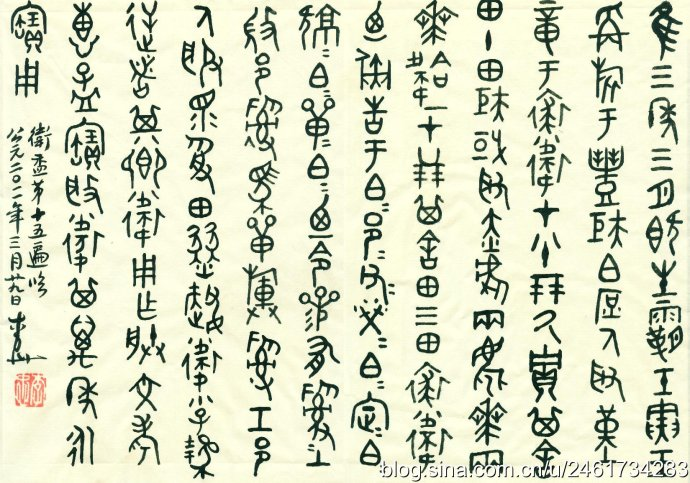 隹三年三月既生霸壬寅王
爯旂于豐矩白庶人取堇
章于裘衛才八十朋厥貯其舍
田十田矩或取赤虎兩𠦪兩
𠦪韐一才廿朋其舍田三田裘衛
廼彘告于白邑父榮白定白
白單白廼令參有𤔲𤔲土
微邑𤔲馬單旟𤔲工邑
人服眾受田燹趞衛小子
逆者其鄉衛用乍朕文考
惠孟寶般衛其萬年永
寶用
衛盉第十五遍
公元二〇二一年三月廿九日
blog.sina.com.cn/u/2461734283